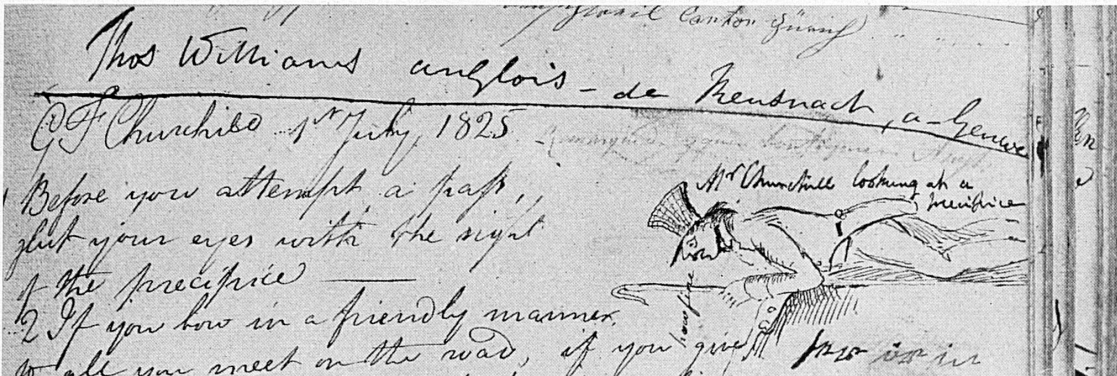 Canton Zürich
Thos Williams anglois - de Keusnach, a - Geneve
G F Churchill 1st July, 1825
Mr Churchill looking at a
precipice
Before you attempt a pass,
glut your eyes with the sight
of the precipice
how fine
2 If you bow in a friendly manner
to all you meet on the road, if you give